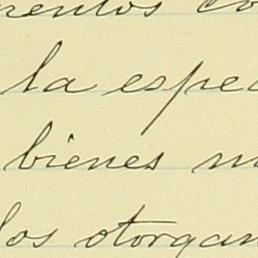 mentos co
la espec
bienes m
los otorgan